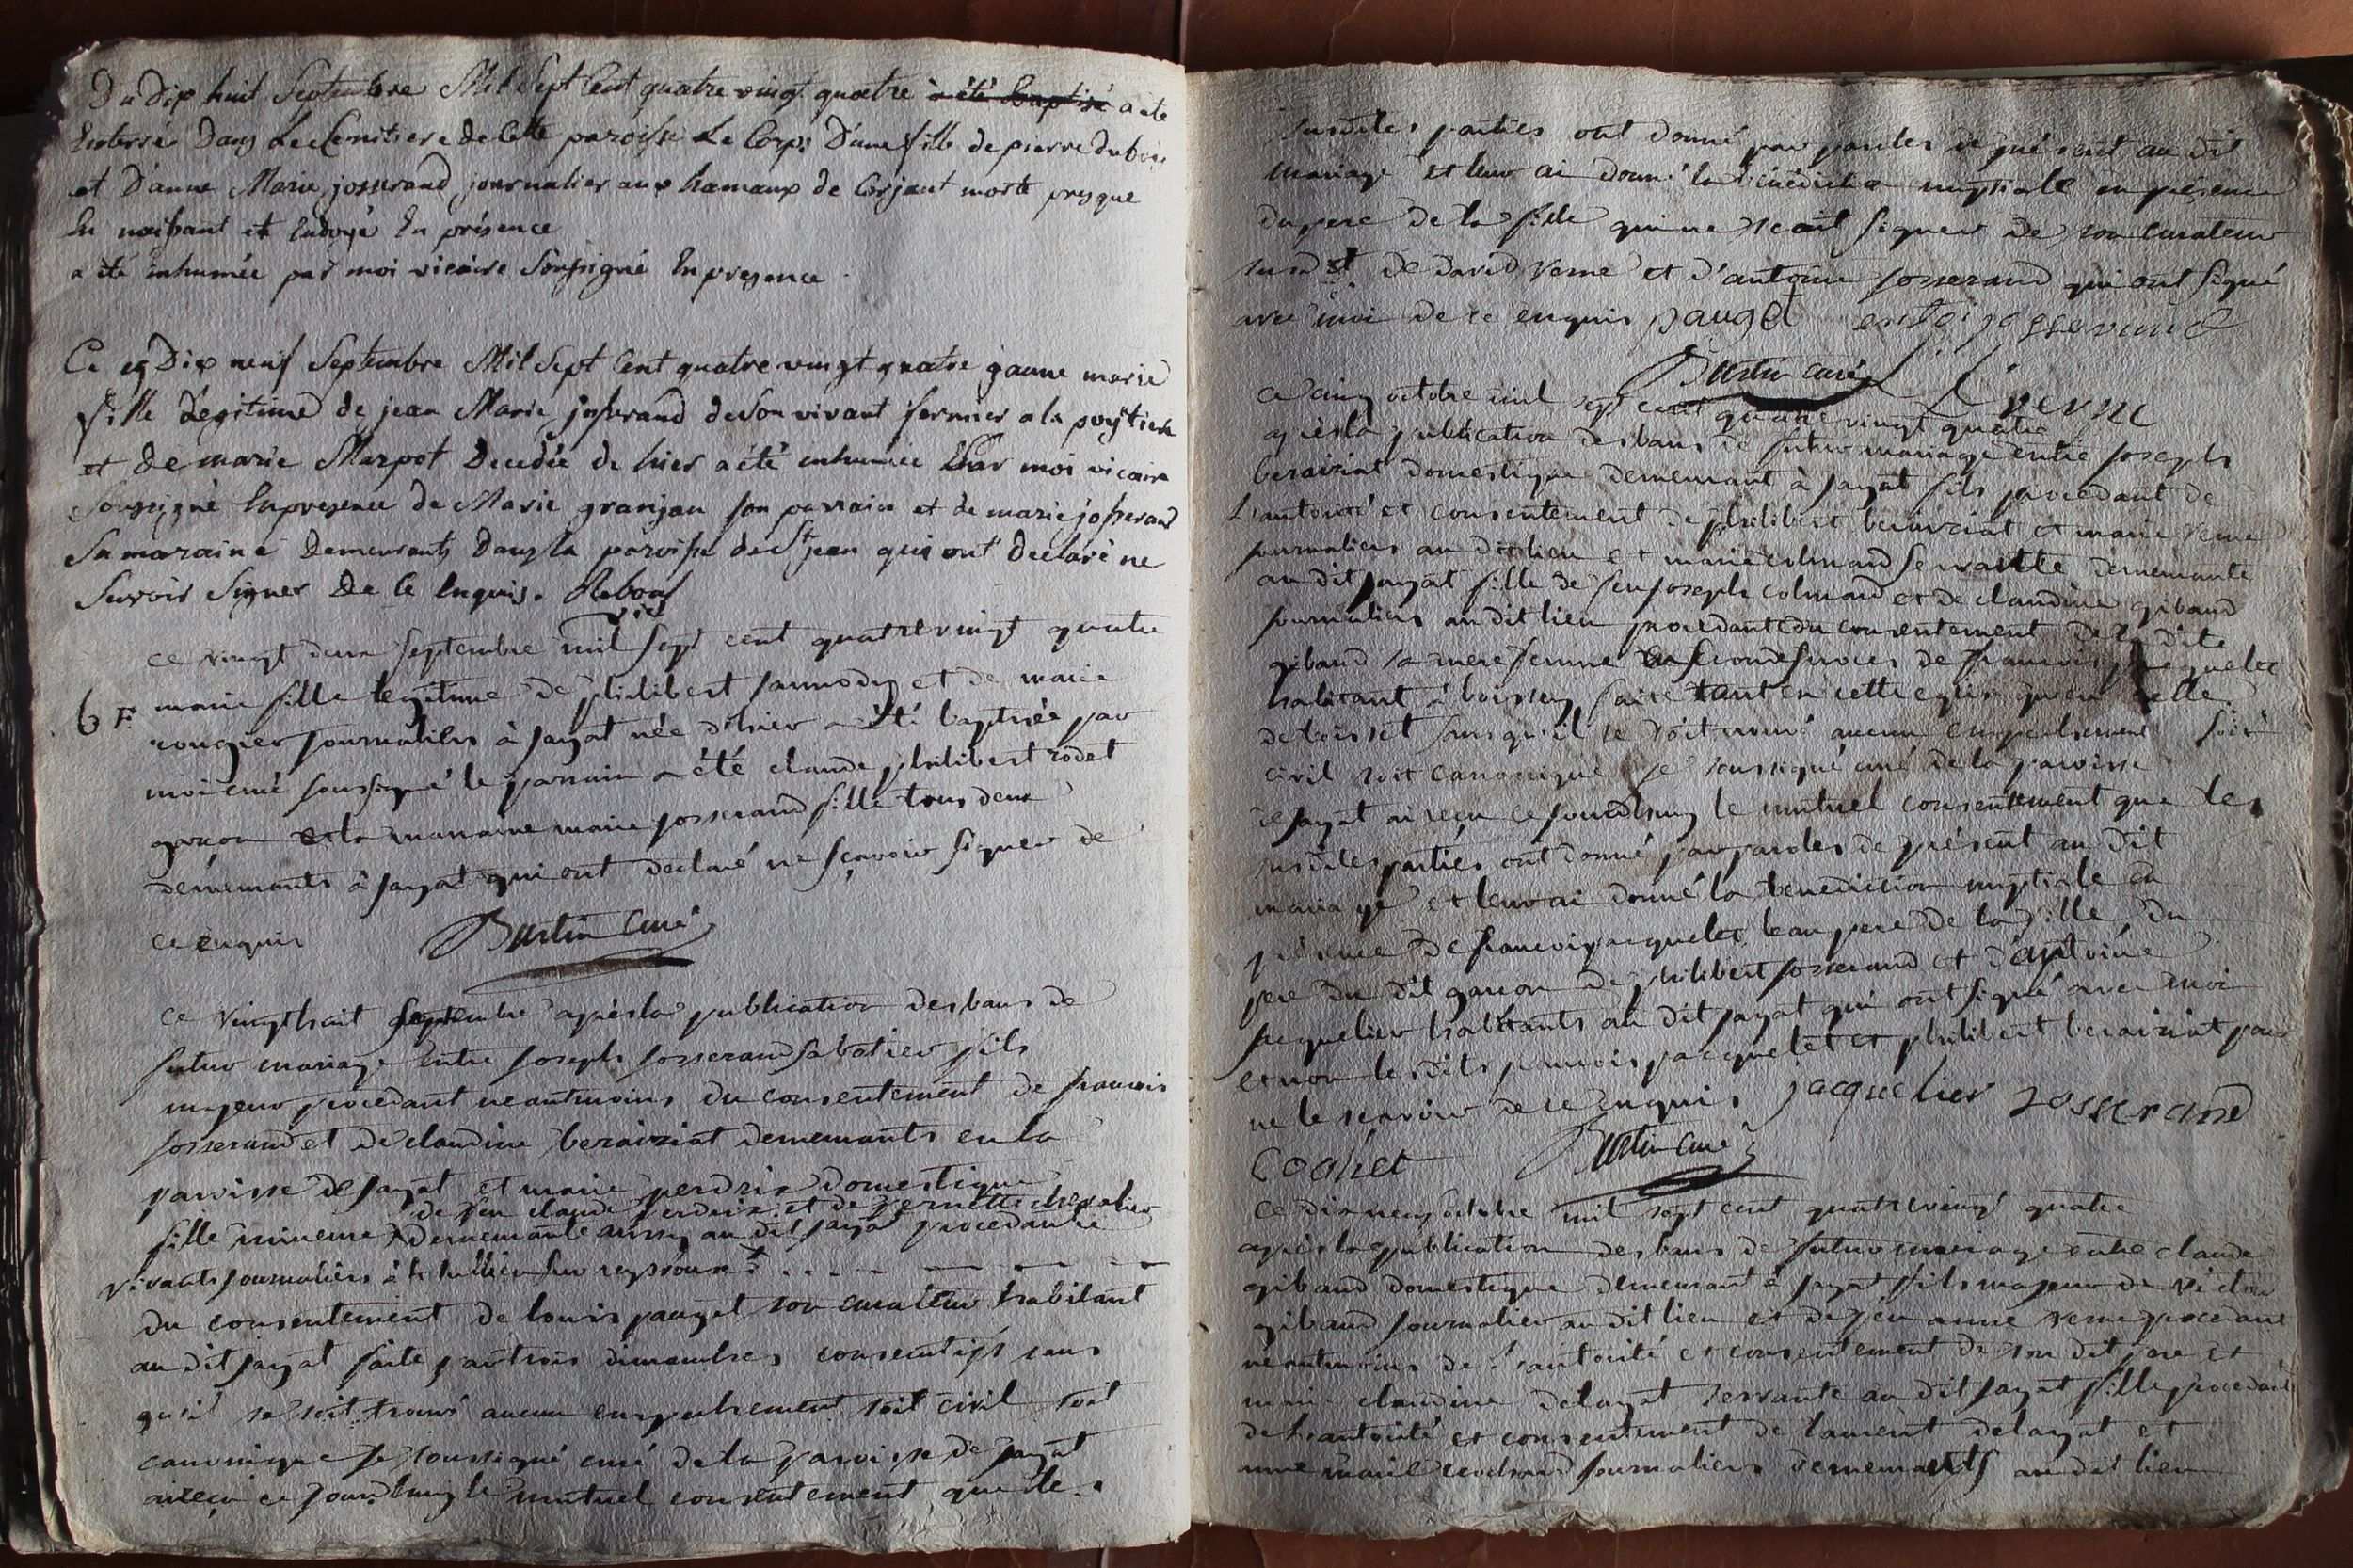 Du Dix huit Septembre Mil Sept Cent quatre vingt quatre a été baptisé a été
Enterré Dans Le Cemitiere de Cette paroisse Le Corps D'une fille de pierre dubois
et D'anne Marie josserand journalier aux hamaux de Corjant morte presque
En naissant et Endoyé En présence
a été inhumée par moi vicaire Soussigné En presence
Ce Dix neuf Septembre Mil Sept Cent quatre vingt quatre jeanne marie
fille Légitime de jean Marie josserand de Son vivant fermier a la
et De marie Marpot Decedée de hier a été inhumée Par moi vicaire
Soussigné En presence de Marie granjan son parrain et de marie josserand
Sa maraine Demeurants Dans la paroisse de St jean qui ont Declaré ne
Savoir Signer De Ce Enquis. Rebouf
vic
ce vingt deux septembre mil sept cent quatre vingt quatre
6 F. marie fille legitime de philibert jannody et de marie
rongier journaliers à jayat née d'hier a été baptisée par
moi curé soussigné le parrain a été claude philibert rodet
garçon et la marraine marie josserand fille tous deux
demeurants à jayat qui ont declaré ne sçavoir signer de
ce enquis Burtin curé
ce vingt huit septembre après la publication des bans de
futur mariage Entre joseph josserand sabotier fils
majeur procedant neantmoins du consentement de francois
josserand et de claudine beraiziat demeurants en la
paroisse de jayat et marie perdrix domestique
de feu claude perdrix et de pernette chevalier
fille mineure demeurante aussy au dit jayat procedante
vivants journaliers à st jullien sur reyssouze
du consentement de louis pauget son curateur habitant
au dit jayat faite par trois dimanches consecutifs sans
qu'il se soit trouvé aucun empechement soit civil soit
canonique je soussigné curé de la paroisse de jayat
ai reçu ce jourdhuy le mutuel consentement que les
susdites parties ont donné par paroles de présent au dit
mariage et leur ai donné la bénédiction nuptiale en présence
du pere de la fille qui ne scait signer de son curateur
susdt de david verne et d'antoine josserand qui ont signé
avec moi de ce enquis pauget josserand
Burtin curé verne
ce cinq octobre mil sept cent quatre vingt quatre
après la publication des bans de futur mariage entre joseph
beraiziat domestique demeurant à jayat fils procedant de
L'autorité et consentement de philibert beraiziat et marie verne
journaliers au dit lieu et marie colmard servante demeurante
au dit jayat fille de feu joseph colmard et de claudine giband
journaliers au dit lieu procedante du consentement de la dite
giband sa mere femme en secondes noces de francois jacquelet
habitant à boissey faite tant en cette eglise qu'en celle
de boisset sans qu'il se soit trouvé aucun empechement soit
civil soit canonique je soussigné curé de la paroisse
de jayat ai reçu ce jourdhuy le mutuel consentement que les
susdites parties ont donné par paroles de présent au dit
mariage et leur ai donné la benediction nuptiale en
présence de francois jacquelet beau pere de la fille, du
pere du dit garcon de philibert josserand et d'antoine
jacquelier habitants au dit jayat qui ont signé avec moi
et non les dits francois jacquelet et philibert beraiziat pour
ne le scavoir de ce enquis jacquelier Josserand
Cochet Burtin curé
ce dix neuf octobre mil sept cent quatre vingt quatre
après la publication des bans de futur mariage entre claude
giband domestique demeurant à jayat fils majeur de victor
giband journalier au dit lieu et de feu anne verne procedant
neantmoins de l'autorité et consentement de son dit pere et
marie claudine delayat servante au dit jayat fille procedant
de l'autorité et consentement de laurent delayat et
journaliers demeurants au dit lieu